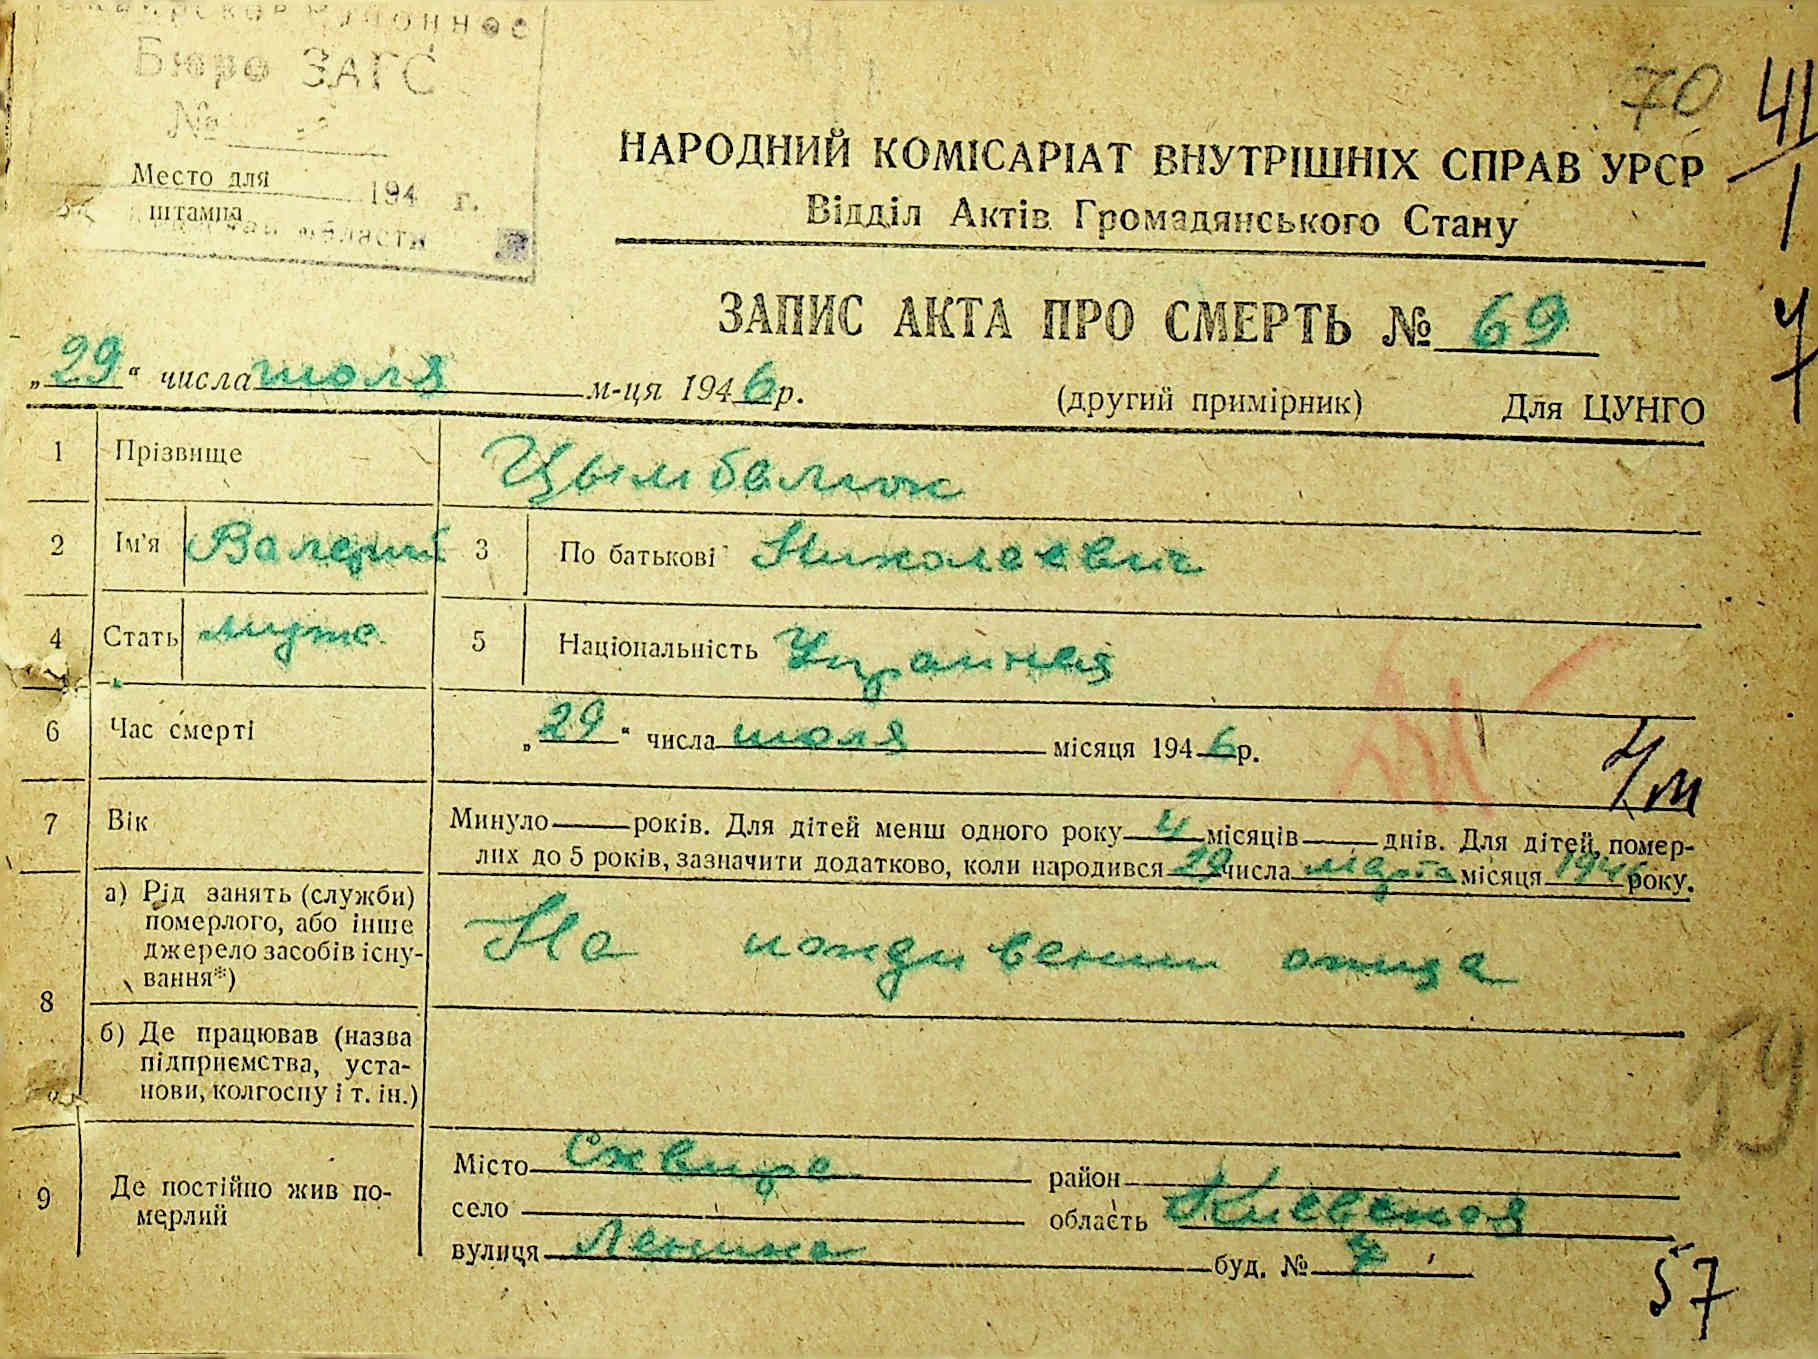 Бюро ЗАГС
№
Место для
штампа
194 г.
области
70
41
1
НАРОДНИЙ КОМІСАРІАТ ВНУТРІШНІХ СПРАВ УРСР
Відділ Актів Громадянського Стану
ЗАПИС АКТА ПРО СМЕРТЬ № 69
„29“ числа июля м-ця 1946 р.
(другий примірник) Для ЦУНГО
1 Прізвище Цымбалюк
2 Ім'я Валерий 3 По батькові Николаевич
4 Стать мужс. 5 Національність
6 Час смерті „29“ числа июля місяця 1946 р.
4 м
7 Вік Минуло — років. Для дітей менш одного року 4 місяців — днів. Для дітей, помер-
лих до 5 років, зазначити додатково, коли народився 29 числа марта місяця 1946 року.
8 а) Рід занять (служби)
померлого, або інше
джерело засобів існу-
вання*)
На иждивении отца
б) Де працював (назва
підприємства, уста-
нови, колгоспу і т. ін.)
19
9 Де постійно жив по-
мерлий
Місто Сквира район
село область Киевская
вулиця Ленина буд. №
57